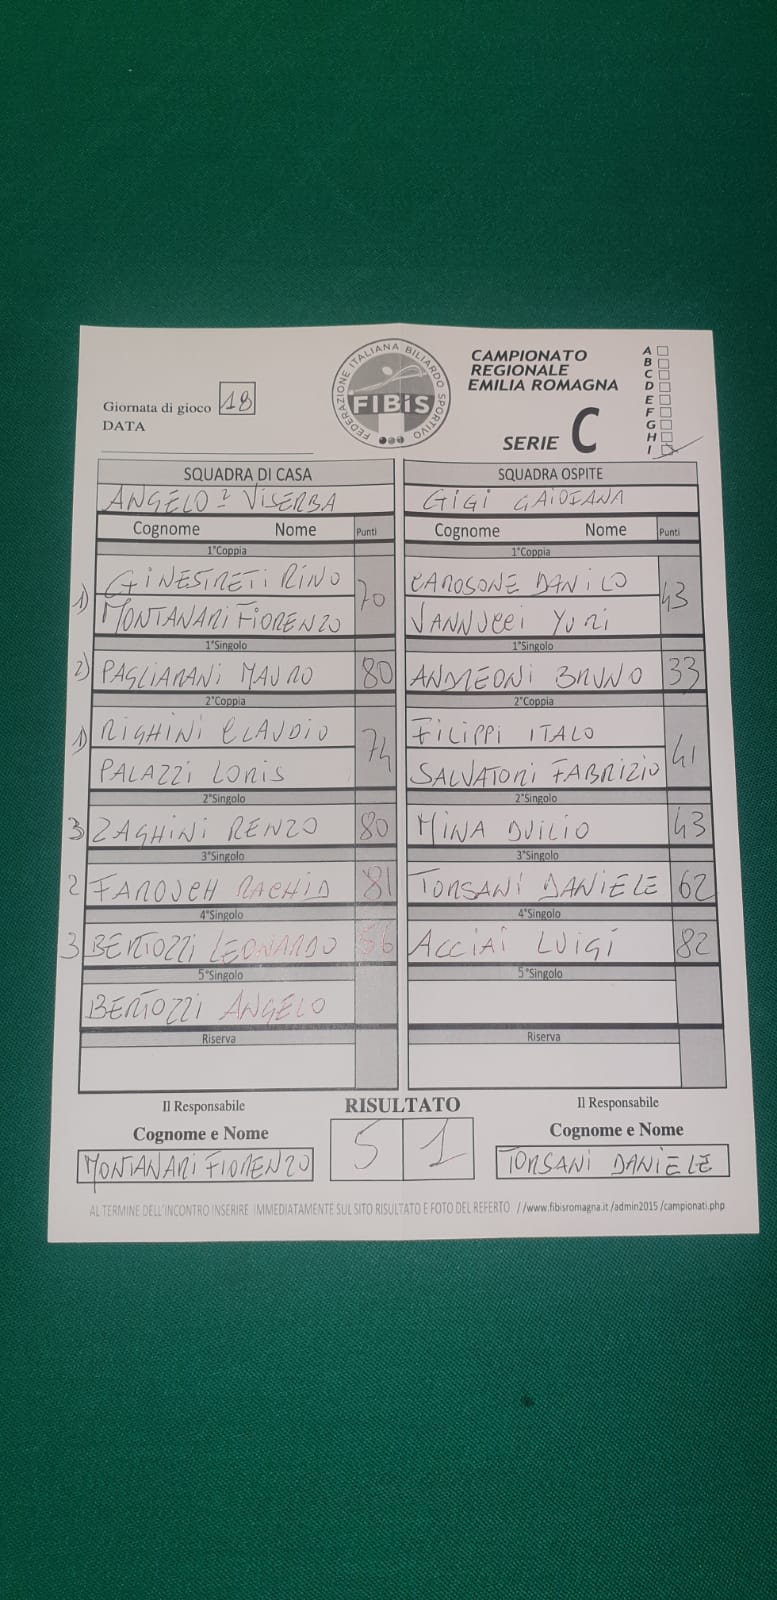 Giornata di gioco 18
DATA
FEDERAZIONE ITALIANA BILIARDO SPORTIVO
FIBiS
CAMPIONATO
REGIONALE
EMILIA ROMAGNA
SERIE C
A
B
C
D
E
F
G
H
I
SQUADRA DI CASA SQUADRA OSPITE
ANGELO 2 VISERBA GIGI GAIOFANA
Cognome Nome Punti Cognome Nome Punti
1°Coppia 1°Coppia
1) GINESTRETI RINO 70 CAROSONE DANILO 43
MONTANARI FIORENZO VANNUCCI YURI
1°Singolo 1°Singolo
2) PAGLIARANI MAURO 80 ANDREONI BRUNO 33
2°Coppia 2°Coppia
1) RIGHINI CLAUDIO 74 FILIPPI ITALO 41
PALAZZI LORIS SALVATORI FABRIZIO
2°Singolo 2°Singolo
3 ZAGHINI RENZO 80 MINA DUILIO 43
3°Singolo 3°Singolo
2 FAROUCH RACHID 81 TORSANI DANIELE 62
4°Singolo 4°Singolo
3 BERTOZZI LEONARDO 56 ACCIAI LUIGI 82
5°Singolo 5°Singolo
BERTOZZI ANGELO
Riserva Riserva
Il Responsabile RISULTATO Il Responsabile
Cognome e Nome 5 1 Cognome e Nome
MONTANARI FIORENZO TORSANI DANIELE
AL TERMINE DELL'INCONTRO INSERIRE IMMEDIATAMENTE SUL SITO RISULTATO E FOTO DEL REFERTO //www.fibisromagna.it /admin2015 /campionati.php